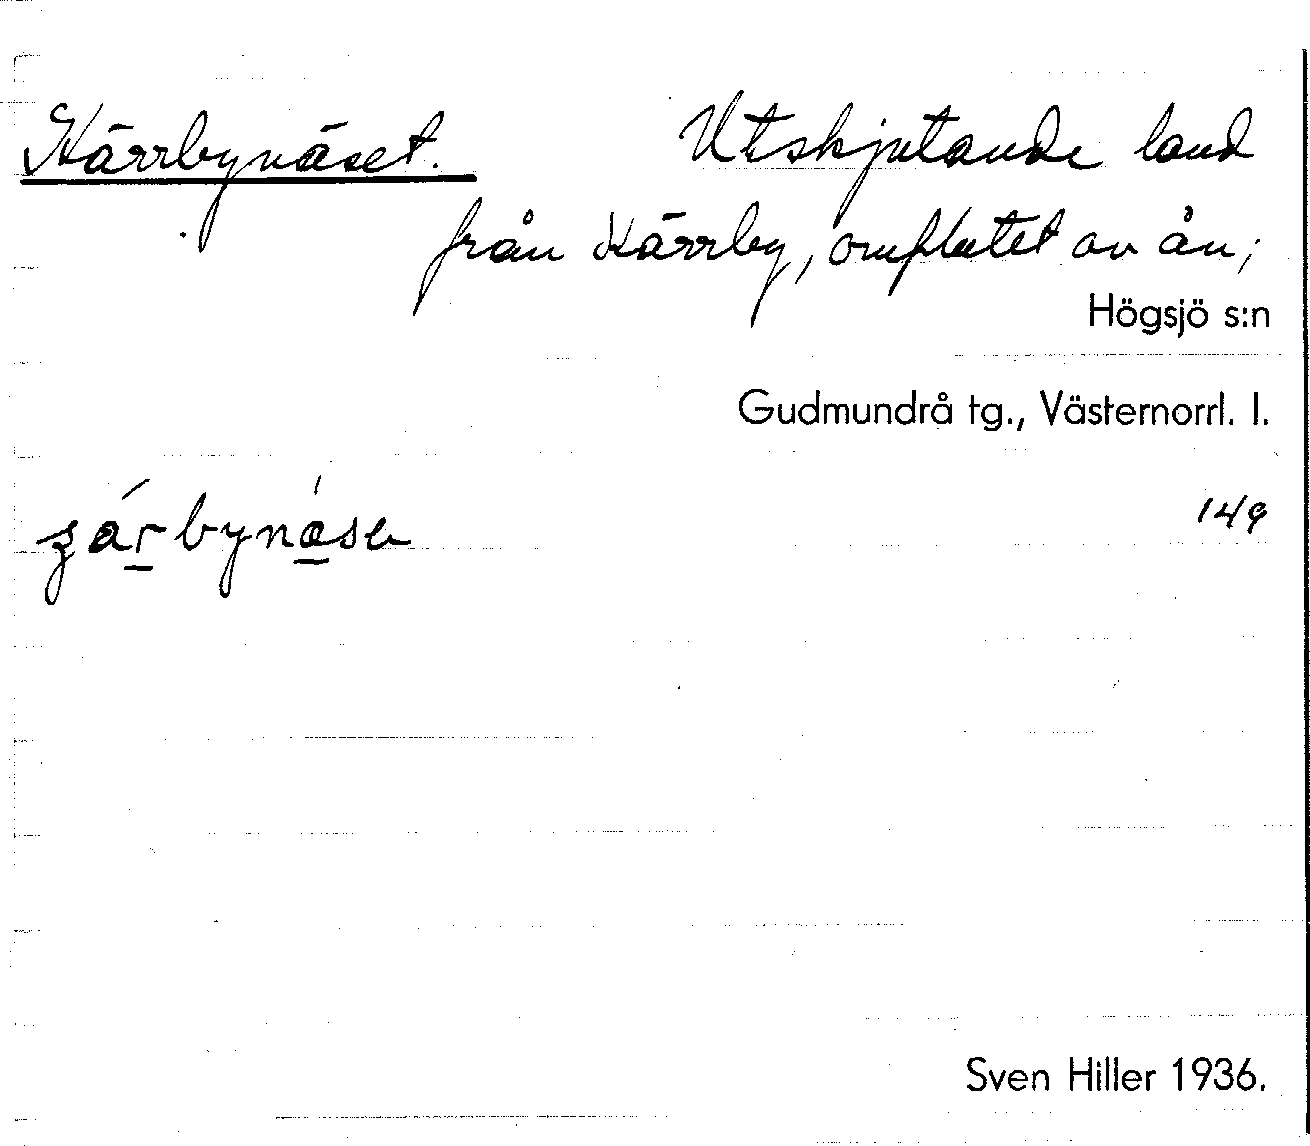 Kärrbynäset. Utskjutande land
från Kärrby, omflutet av ån;
Högsjö s:n
Gudmundrå tg., Västernorrl. l.
149
Sven Hiller 1936.